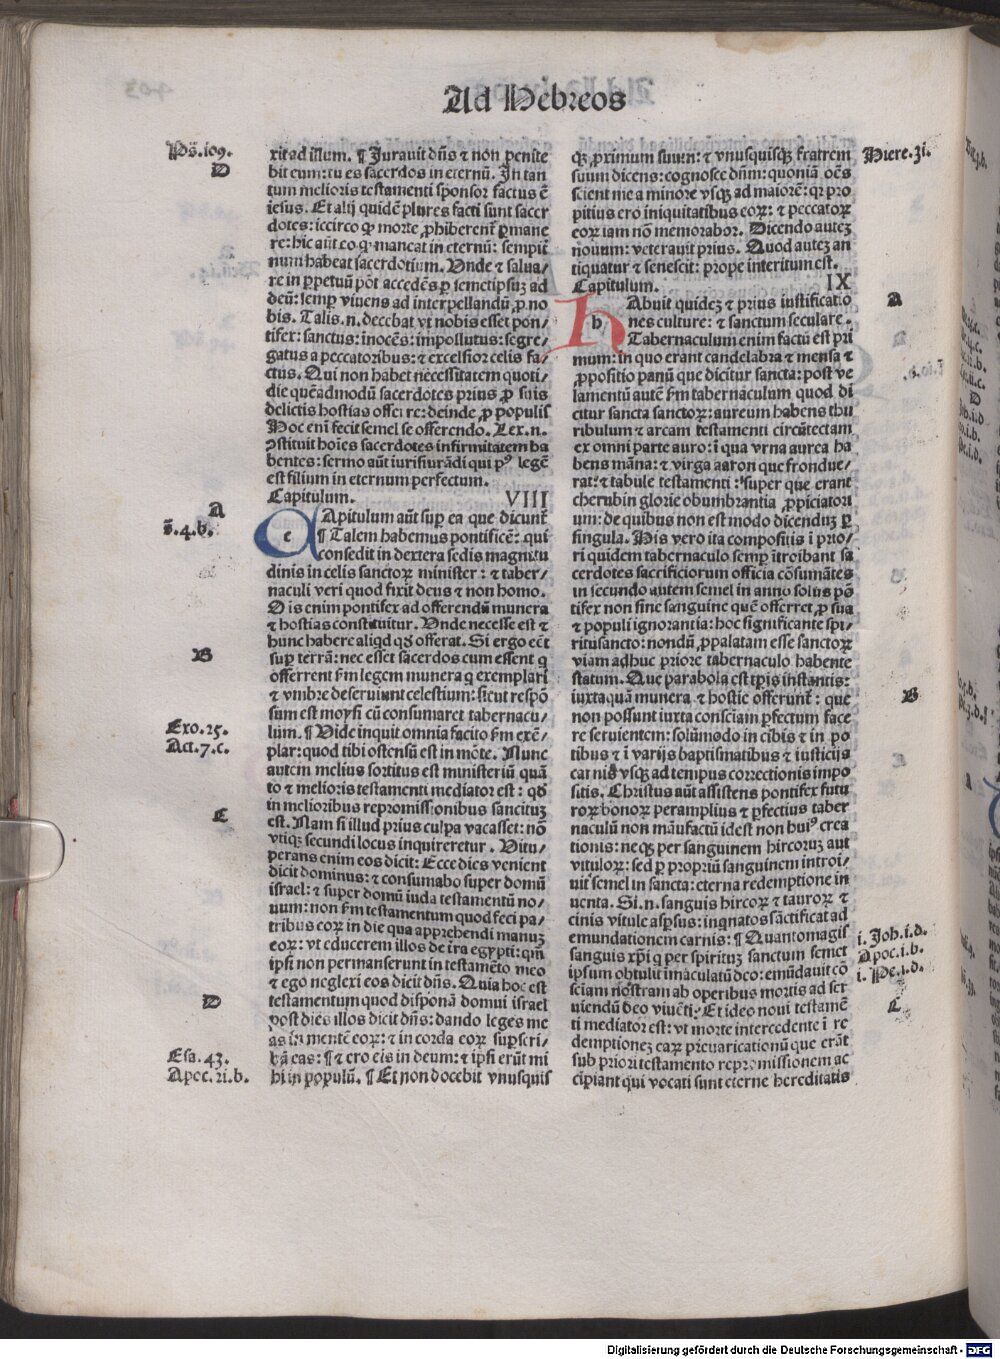 Ad Hebreos
Ps̄.109.
D
xit ad illum. ¶ Jurauit dn̄s ⁊ non penite
bit eum: tu es sacerdos in eternū. In tan
tum melioris testamenti sponsor factus ē
iesus. Et alij quidē plures facti sunt sacer
dotes: iccirco ꝙ morte ꝓhiberent̄ ꝑmane
re: hic aūt eo ꝙ maneat in eternū: sempit̄
num habeat sacerdotium. Unde ⁊ salua/
re in ꝑpetuū pōt accedēs ꝑ semetipsuꝫ ad
deū: semꝑ viuens ad interpellandū ꝓ no
bis. Talis.n. decebat vt nobis esset pon/
tifex: sanctus: inocēs: impollutus: segre/
gatus a peccatoribus: ⁊ excelsior celis fa/
ctus. Qui non habet necessitatem quoti/
die quēadmodū sacerdotes prius ꝓ suis
delictis hostias offerre: deinde ꝓ populis
Hoc enī fecit semel se offerendo. Lex.n.
ꝯstituit hoīes sacerdotes infirmitatem ha
bentes: sermo aūt iurisiurādi qui pꝰ legē
est filium in eternum perfectum.
Capitulum. VIII
A
s̄.4.b.
c
Apitulum aūt suꝑ ea que dicunt̄
¶ Talem habemus pontificē: qui
consedit in dextera sedis magnitu
dinis in celis sanctoꝝ minister: ⁊ taber/
naculi veri quod fixit deus ⁊ non homo.
Ois enim pontifex ad offerendū munera
⁊ hostias constituitur. Unde necesse est ⁊
hunc habere aliqd qd̄ offerat. Si ergo eēt
B
suꝑ terrā: nec esset sacerdos cum essent q
offerrent s̄m legem munera q exemplari
⁊ vmbre deseruiunt celestium: sicut respō
sum est moysi cū consumaret tabernacu/
Exo.25.
Act.7.c.
lum. ¶ Vide inquit omnia facito s̄m exē/
plar: quod tibi ostensū est in mōte. Nunc
autem melius sortitus est ministeriū quā
to ⁊ melioris testamenti mediator est: qd̄
in melioribus repromissionibus sancituꝫ
C
est. Nam si illud prius culpa vacasset: nō
vtiqꝫ secundi locus inquireretur. Vitu/
perans enim eos dicit: Ecce dies venient
dicit dominus: ⁊ consumabo super domū
israel: ⁊ super domū iuda testamentū no/
uum: non s̄m testamentum quod feci pa/
tribus eoꝝ in die qua apprehendi manuꝫ
eoꝝ: vt educerem illos de t̄ra egypti: qm̄
ipsi non permanserunt in testamēto meo
⁊ ego neglexi eos dicit dn̄s. Quia hoc est
D
testamentum quod disponā domui israel
post dies illos dicit dn̄s: dando leges me
as in mentē eoꝝ: ⁊ in corda eoꝝ suꝑscri/
Esa.43.
Apoc.21.b.
bā eas: ¶ ⁊ ero eis in deum: ⁊ ipsi erūt mi
hi in populū. ¶ Et non docebit vnusquis
Hiere.31.
qꝫ ꝓximum suum: ⁊ vnusquisqꝫ fratrem
suum dicens: cognosce dn̄m: quoniā oēs
scient me a minore vsqꝫ ad maiorē: qꝛ pro
pitius ero iniquitatibus eoꝝ: ⁊ peccatoꝝ
eoꝝ iam nō memorabor. Dicendo auteꝫ
nouum: veterauit prius. Quod auteꝫ an
tiquatur ⁊ senescit: prope interitum est.
Capitulum. IX
A
h
Abuit quideꝫ ⁊ prius iustificatio
nes culture: ⁊ sanctum seculare.
Tabernaculum enim factū est pri
mum: in quo erant candelabra ⁊ mensa ⁊
ꝓpositio panū que dicitur sancta: post ve
lamentū autē s̄m tabernaculum quod di
citur sancta sanctoꝝ: aureum habens thu
ribulum ⁊ arcam testamenti circūtectam
ex omni parte auro: ī qua vrna aurea ha
bens māna: ⁊ virga aaron que frondue/
rat: ⁊ tabule testamenti: super que erant
cherubin glorie obumbrantia ꝓpiciatori
um: de quibus non est modo dicenduꝫ ꝑ
singula. His vero ita compositis ī prio/
ri quidem tabernaculo semꝑ ītroibant sa
cerdotes sacrificiorum officia cōsumātes
in secundo autem semel in anno solus pō
tifex non sine sanguine quē offerret ꝓ sua
⁊ populi ignorantia: hoc significante spi/
ritusancto: nondū ꝓpalatam esse sanctoꝝ
viam adhuc priore tabernaculo habente
statum. Que parabola est tꝑis instantis:
B
iuxta quā munera ⁊ hostie offerunt̄: que
non possunt iuxta consciam ꝑfectum face
re seruientem: solūmodo in cibis ⁊ in po
tibus ⁊ ī varijs baptismatibus ⁊ iusticijs
carnis vsqꝫ ad tempus correctionis impo
sitis. Christus aūt assistens pontifex futu
roꝝ bonoꝝ per amplius ⁊ ꝑfectius taber
naculū non māufactū idest non huiꝰ crea
tionis: neqꝫ per sanguinem hircoruꝫ aut
vituloꝝ: sed ꝑ propriū sanguinem introi/
uit semel in sancta: eterna redemptione in
uenta. Si.n. sanguis hircoꝝ ⁊ tauroꝝ ⁊
cinis vitule asꝑsus: inqnatos sāctificat ad
i. Joh.i.d.
Apoc.i.b.
i. Pe.i.d.
emundationem carnis: ¶ Quantomagis
sanguis xp̄i q per spirituꝫ sanctum semet
ipsum obtulit īmaculatū deo: emūdauit cō
sciam nostram ab operibus mortis ad ser
uiendū deo viuēti? Et ideo noui testamē
C
ti mediator est: vt morte intercedente ī re
demptioneꝫ eaꝝ preuaricationū que erāt
sub priori testamento repromissionem ac
cipiant qui vocati sunt eterne hereditatis
Digitalisierung gefördert durch die Deutsche Forschungsgemeinschaft - DFG